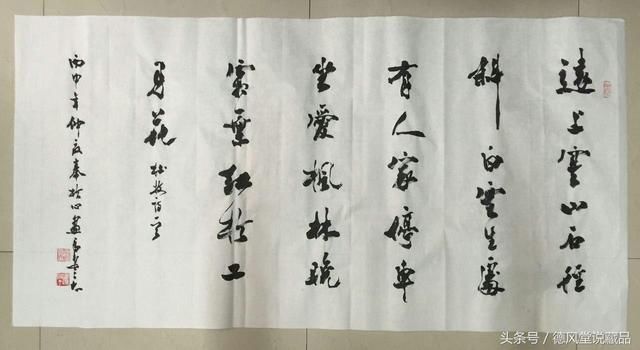 遠上寒山石徑
斜白雲生處
有人家停車
坐愛楓林晚
霜葉紅於二
月花 杜牧詩
丙申年仲夏
头条号／德风堂说藏品